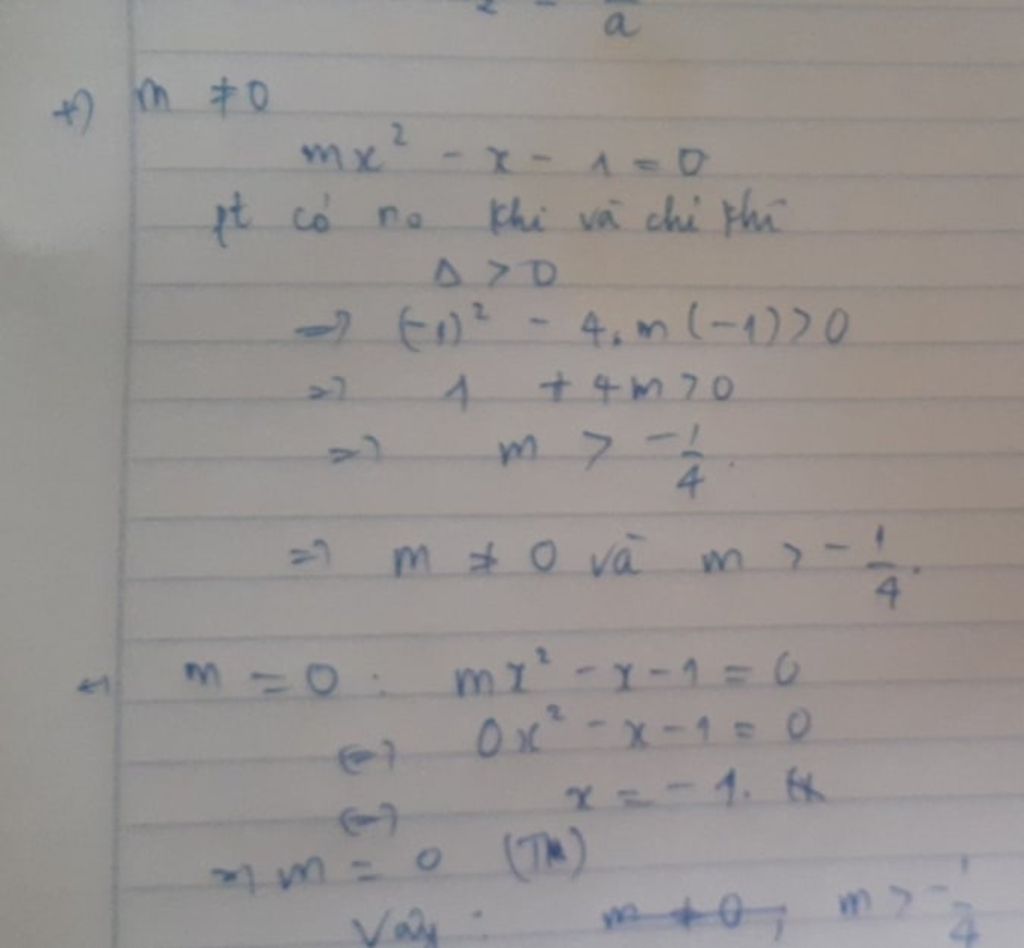 a
+) m ≠ 0
mx² - x - 1 = 0
pt có no khi và chỉ khi
Δ > 0
=> (-1)² - 4.m(-1) > 0
=> 1 + 4m > 0
=> m > -1/4.
=> m ≠ 0 và m > -1/4.
m = 0 : mx² - x - 1 = 0
<=> 0x² - x - 1 = 0
<=> x = -1.
=> m = 0 (TM)
Vậy : m ≠ 0, m > -1/4